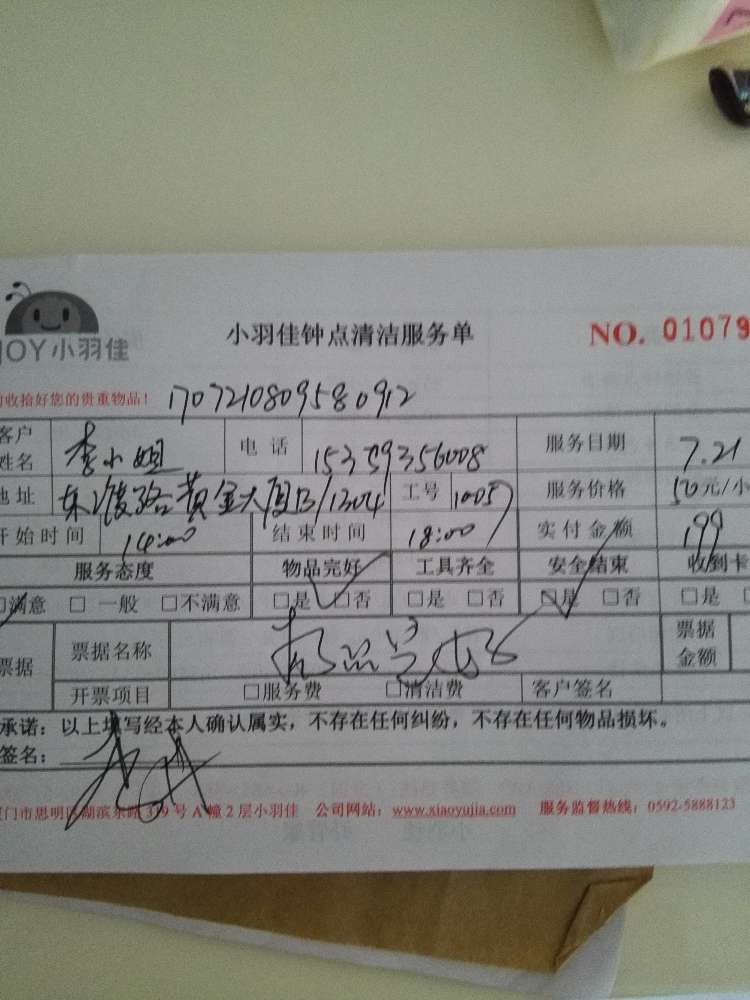 JOY小羽佳
小羽佳钟点清洁服务单
NO. 01079
收拾好您的贵重物品!
170721080958 0912
客户姓名 李小姐 电话 15359356008 服务日期 7.21
地址 黄金大厦B/1304 工号 1005 服务价格 50元/小
开始时间 14:00 结束时间 18:00 实付金额 199
服务态度 物品完好 工具齐全 安全结束 收到卡
□满意 □一般 □不满意 □是 □否 □是 □否 □是 □否 □是
票据 票据名称 票据金额
开票项目 □服务费 □清洁费 客户签名
承诺:以上填写经本人确认属实,不存在任何纠纷,不存在任何物品损坏。
签名:
门市思明区湖滨东路319号A幢2层小羽佳 公司网站:www.xiaoyujia.com 服务监督热线:0592-5888123